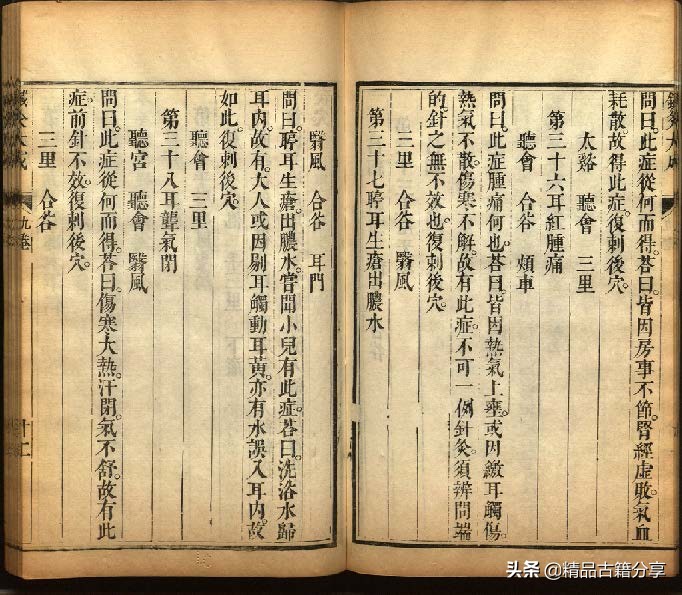 鍼灸大成
問曰此症從何而得。荅曰皆因房事不節。腎經虛敗。氣血
耗散。故得此症。復刺後穴。
太谿 聽會 三里
第三十六耳紅腫痛
聽會 合谷 頰車
問曰。此症腫痛何也。荅曰。皆因熱氣上壅。或因繳耳觸傷。
熱氣不散。傷寒不解。故有此症。不可一例針灸。須辨問端
的針之無不效也。復刺後穴。
三里 合谷 翳風
第三十七聤耳生瘡出膿水
翳風 合谷 耳門
問曰。聤耳生瘡出膿水。嘗聞小兒有此症。荅曰。洗浴水歸
耳內。故有。大人或因剔耳觸動耳黃。亦有水誤入耳內。故
如此。復刺後穴。
聽會 三里
第三十八耳聾氣閉
聽宮 聽會 翳風
問曰。此症從何而得。荅曰。傷寒大熱。汗閉。氣不舒。故有此
症。前針不效。復刺後穴。
三里 合谷
鍼灸大成 九卷 十二
头条 @精品古籍分享